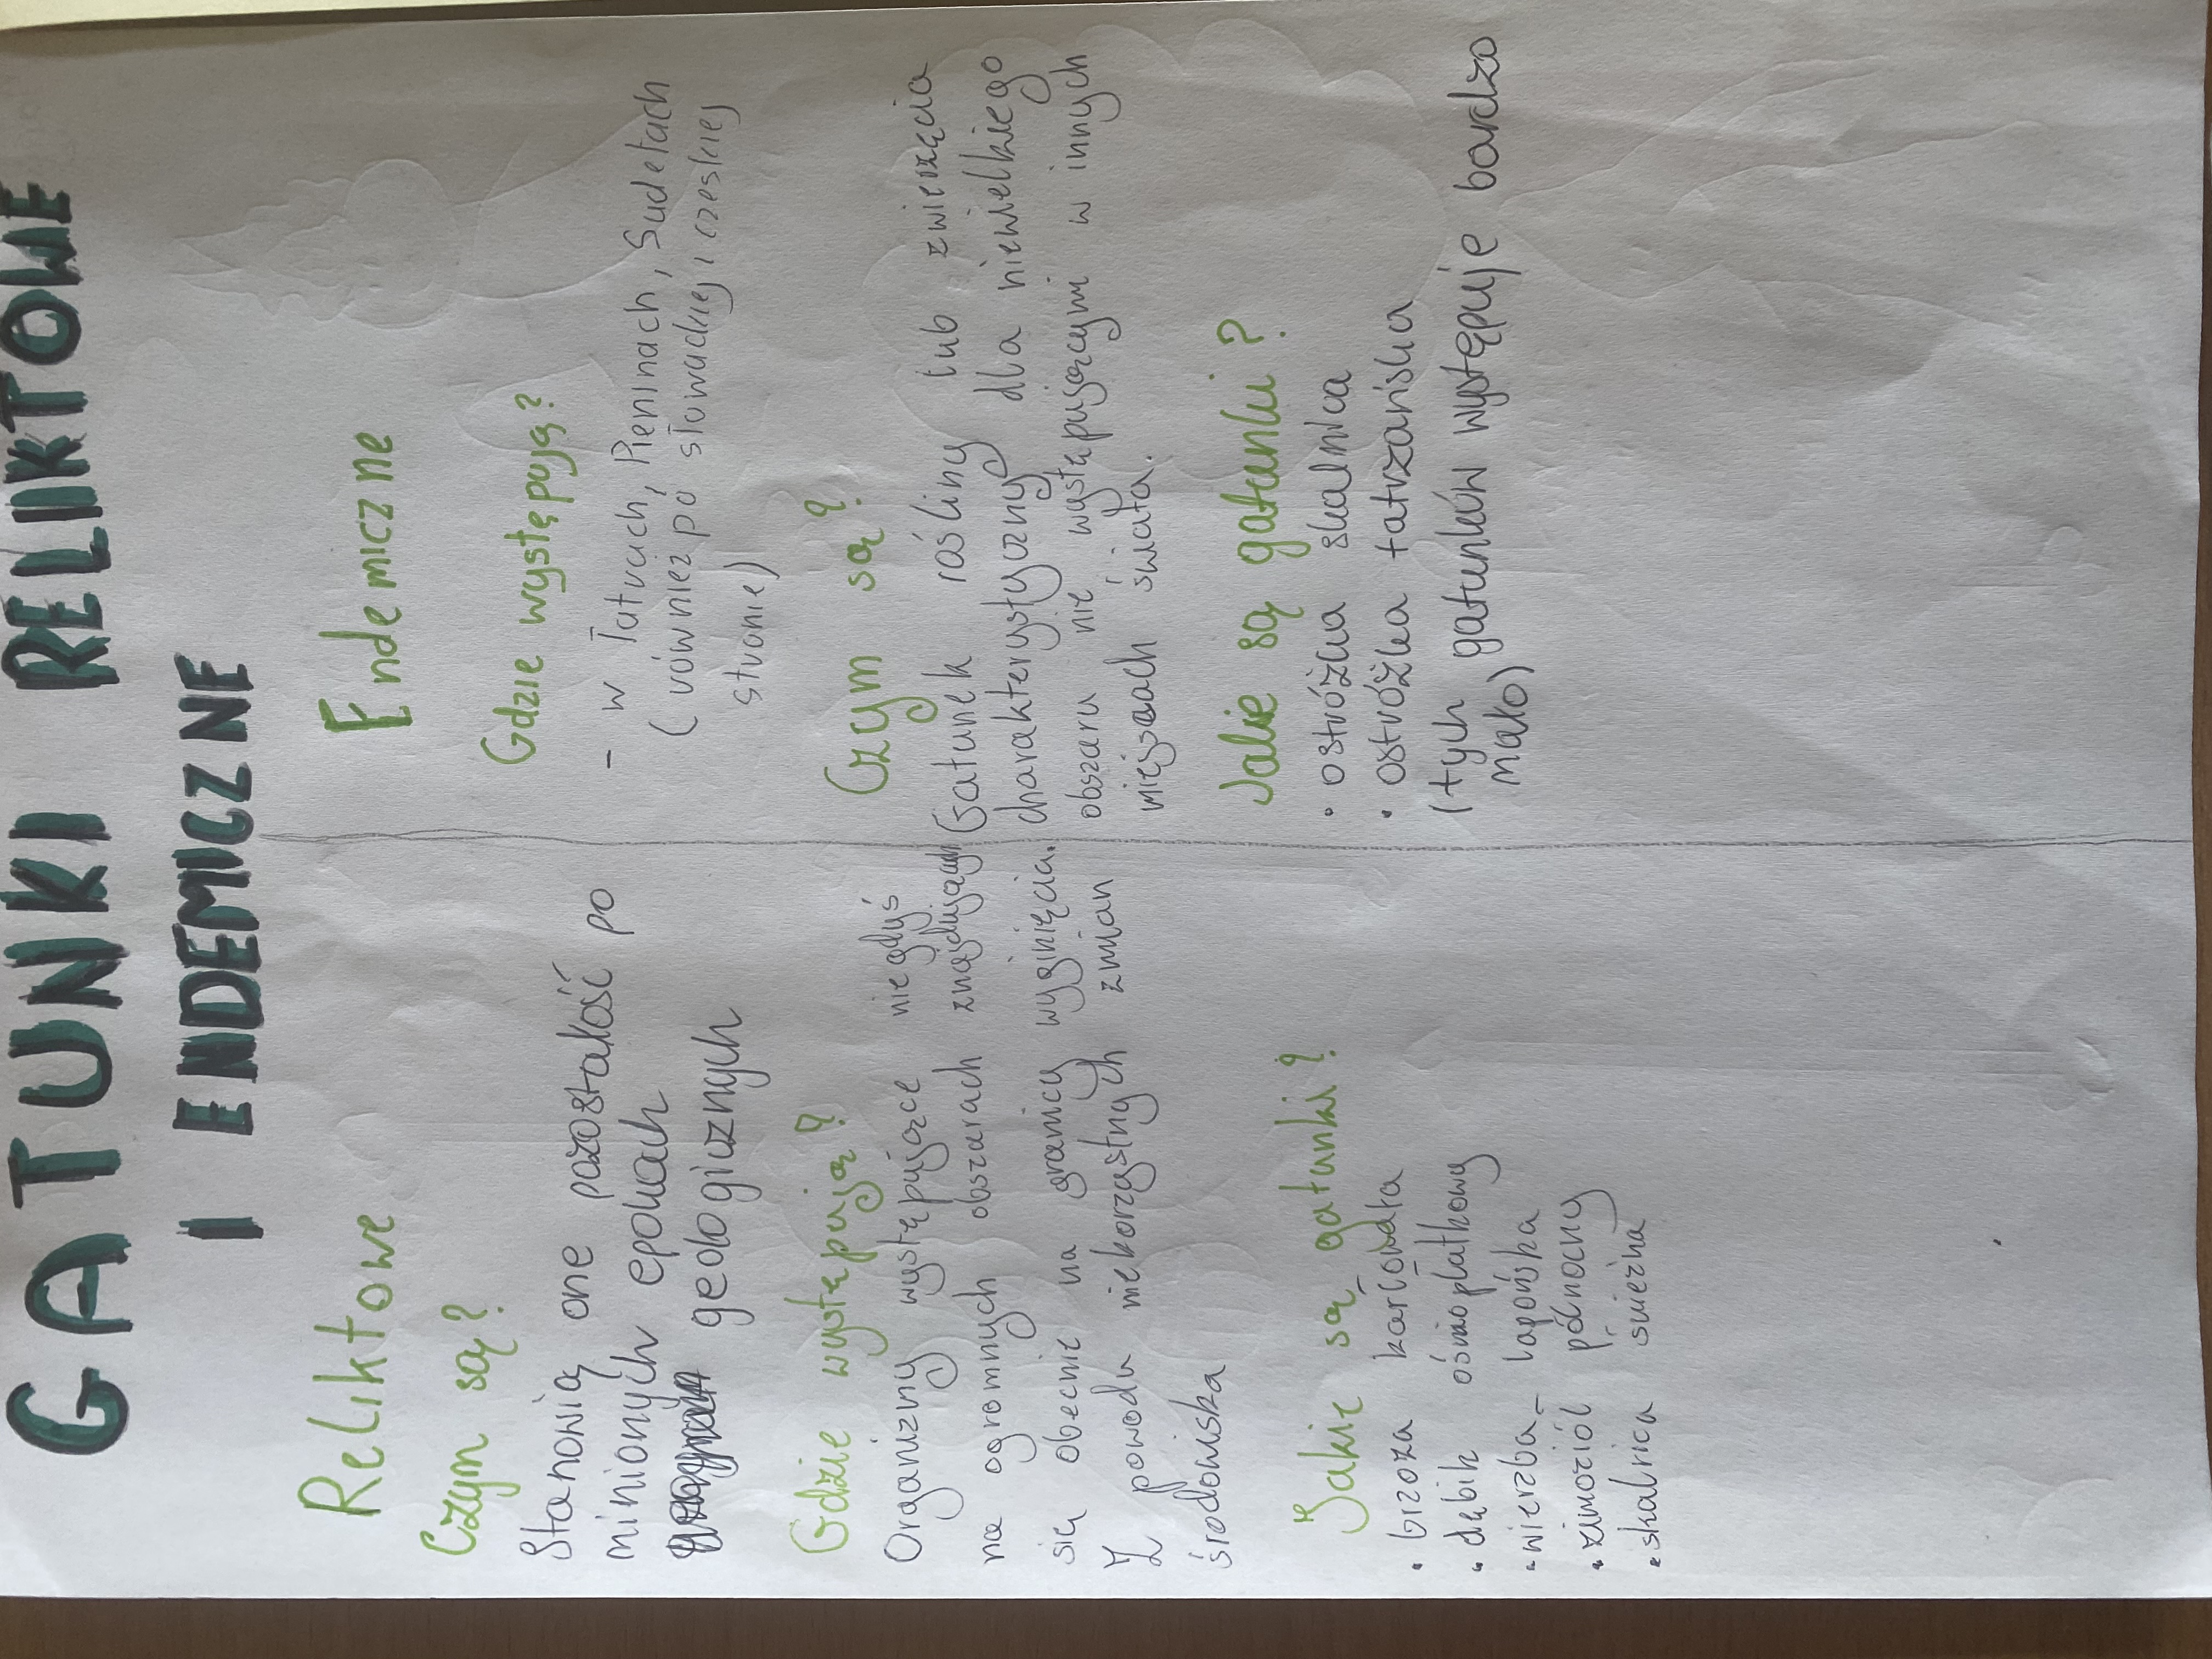 GATUNKI RELIKTOWE
I ENDEMICZNE
Reliktowe
Czym są?
Stanowią one pozostałość po
minionych epokach
geologicznych
Gdzie występują?
Organizmy występujące niegdyś
na ogromnych obszarach znajdujących
się obecnie na granicy wyginięcia.
Z powodu niekorzystnych zmian
środowiska
Jakie są gatunki?
• brzoza karłowata
• dębik ośmiopłatkowy
• wierzba lapońska
• zimoziół północny
• skalnica śnieżna
Endemiczne
Gdzie występują?
- w Tatrach, Pieninach, Sudetach
(również po słowackiej i czeskiej
stronie)
Czym są?
Gatunek rośliny lub zwierzęcia
charakterystyczny dla niewielkiego
obszaru nie występującymi w innych
miejscach świata.
Jakie są gatunki?
• ostróżka skalnica
• ostróżka tatrzańska
(tych gatunków występuje bardzo
mało)